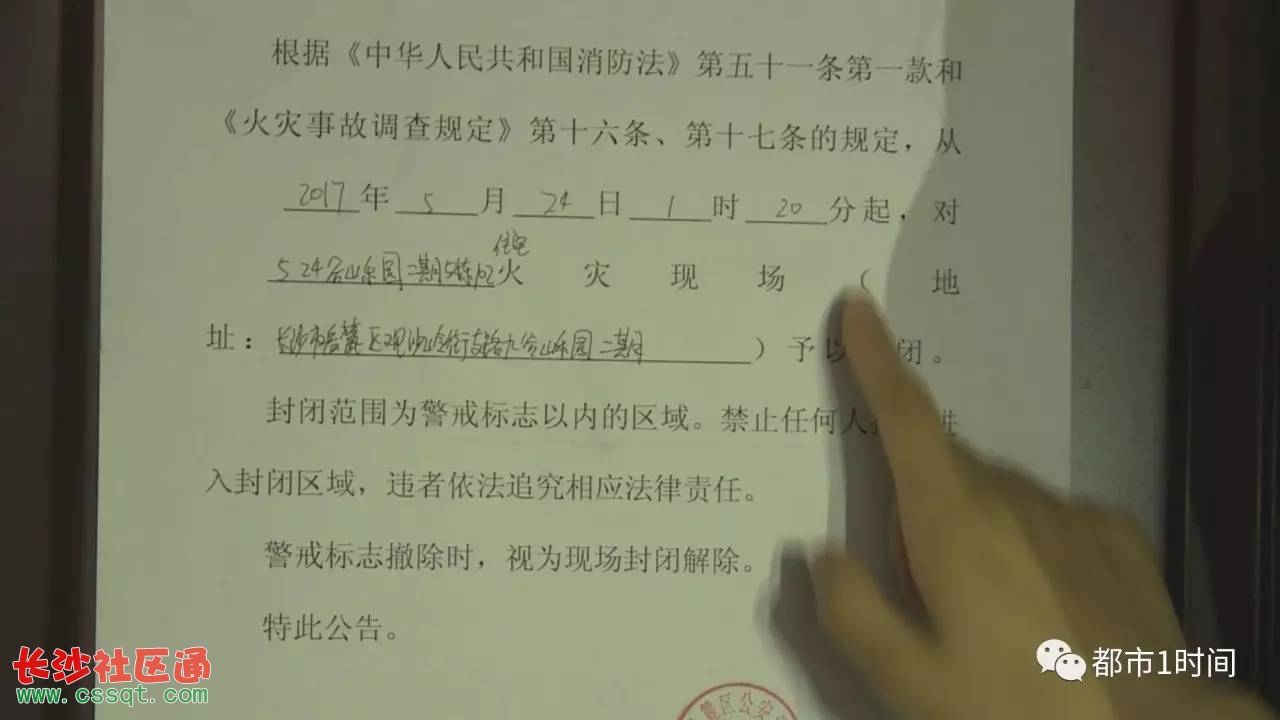 根据《中华人民共和国消防法》第五十一条第一款和
《火灾事故调查规定》第十六条、第十七条的规定，从
2017年5月24日1时20分起，对
住宅
524谷山乐园二期5栋102火灾现场（地
址：长沙市岳麓区观沙岭街支路九谷山乐园二期）予以闭。
封闭范围为警戒标志以内的区域。禁止任何人进
入封闭区域，违者依法追究相应法律责任。
警戒标志撤除时，视为现场封闭解除。
特此公告。
麓区公安
长沙社区通
www.cssqt.com
都市1时间